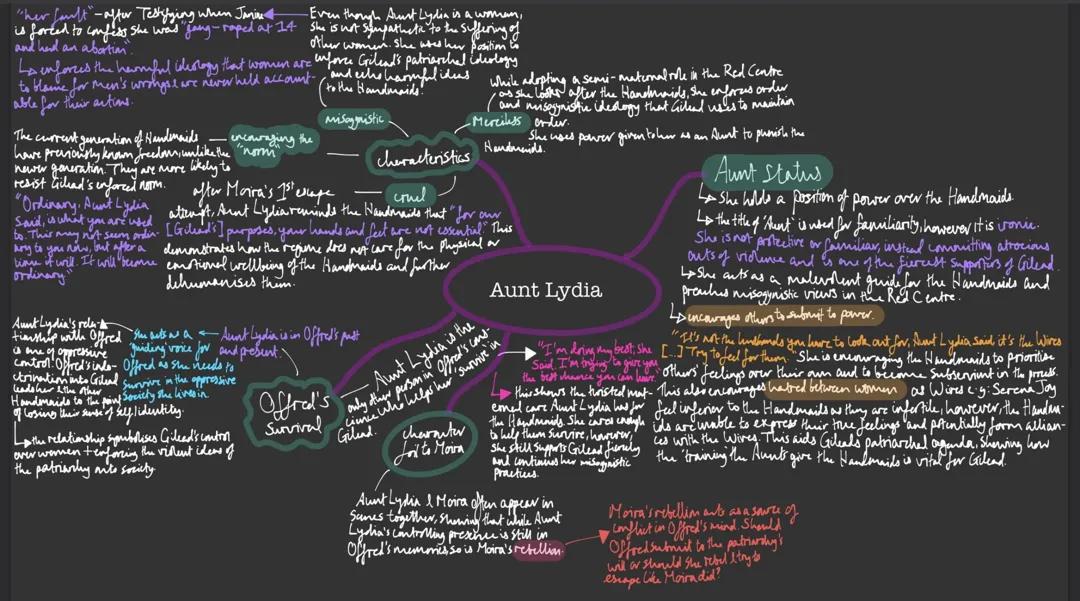 "her fault" - after Testifying when Janine
is forced to confess she was "gang-raped at 14
and had an abortion"
↳ enforces the harmful ideology that women are
to blame for men's wrongs & are never held account-
able for their actions.
Even though Aunt Lydia is a woman,
she is not sympathetic to the suffering of
other women. She uses her position to
enforce Gilead's patriarchal ideology
and echo harmful ideas
to the Handmaids.
misogynistic
While adopting a semi-maternal role in the Red Centre
as she looks after the Handmaids, she enforces order
and misogynistic ideology that Gilead uses to maintain
order.
Merciless
She uses power given to her as an Aunt to punish the
Handmaids.
characteristics
The current generation of Handmaids
have previously known freedom, unlike the
newer generation. They are more likely to
resist Gilead's enforced norm.
encouraging the
"norm"
"Ordinary, Aunt Lydia
said, is what you are used
to. This may not seem ordin-
ary to you now, but after a
time it will. It will become
ordinary."
cruel
after Moira's 1st escape
attempt, Aunt Lydia reminds the Handmaids that "for our
[Gilead's] purposes, your hands and feet are not essential" This
demonstrates how the regime does not care for the physical or
emotional wellbeing of the Handmaids and further
dehumanises them.
Aunt Status
↳ She holds a position of power over the Handmaids
↳ the title of 'Aunt' is used for familiarity, however it is ironic.
She is not protective or familiar, instead committing atrocious
acts of violence and is one of the fiercest supporters of Gilead.
↳ She acts as a malevolent guide for the Handmaids and
preaches misogynistic views in the Red Centre.
↳ encourages others to submit to power.
"It's not the husbands you have to look out for, Aunt Lydia said, it's the Wives
[...] Try to feel for them" She is encouraging the Handmaids to prioritise
others' feelings over their own and to become subservient in the process.
This also encourages hatred between women as Wives e.g. Serena Joy
feel inferior to the Handmaids as they are infertile, however, the Handma-
ids are unable to express their true feelings and potentially form allian-
ces with the Wives. This aids Gilead's patriarchal agenda, showing how
the 'training' the Aunts give the Handmaids is vital for Gilead.
Aunt Lydia
Aunt Lydia's rela-
tionship with Offred
is one of oppressive
control. Offred's indo-
ctrination into Gilead
leads her & the other
Handmaids to the point
of losing their sense of self/identity.
↳ the relationship symbolises Gilead's control
over women + enforcing the violent ideas of
the patriarchy onto society
She acts as a
'guiding voice' for
Offred as she needs to
survive in the oppressive
society she lives in
Aunt Lydia is in Offred's past
and present.
Offred's
Survival
Aunt Lydia is the
only other person in Offred's cons-
cience who helps her "survive" in
Gilead.
"I'm doing my best, She
said. I'm trying to give you
the best chance you can have."
↳ this shows the twisted mat-
ernal care Aunt Lydia has for
the Handmaids. She cares enough
to help them survive, however,
she still supports Gilead fiercely
and continues her misogynistic
practices.
character
foil to Moira
Aunt Lydia & Moira often appear in
scenes together, showing that while Aunt
Lydia's controlling presence is still in
Offred's memories so is Moira's rebellion.
Moira's rebellion acts as a source of
conflict in Offred's mind. Should
Offred submit to the patriarchy's
will or should she rebel & try to
escape like Moira did?